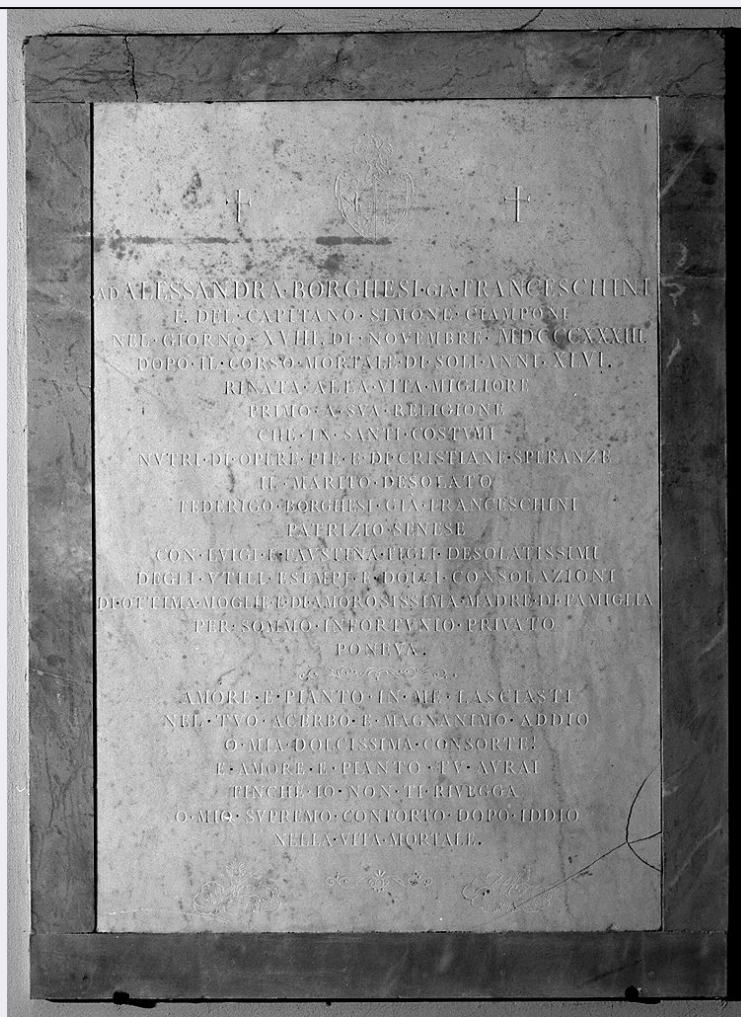 AD·ALESSANDRA·BORGHESI·GIA·FRANCESCHINI
F. DEL·CAPITANO·SIMONE·CIAMPONI
NEL·GIORNO·XVIII·DI·NOVEMBRE·MDCCCXXXIII.
DOPO·IL·CORSO·MORTALE·DI·SOLI·ANNI·XLVI.
RINATA·ALLA·VITA·MIGLIORE
PRIMO·A·SVA·RELIGIONE
CHE·IN·SANTI·COSTVMI
NVTRI·DI·OPERE·PIE·E·DI·CRISTIANE·SPERANZE
IL·MARITO·DESOLATO
FEDERIGO·BORGHESI·GIÀ·FRANCESCHINI
PATRIZIO·SENESE
CON·LVIGI·E·FAVSTINA·FIGLI·DESOLATISSIMI
DEGLI·VTILI·ESEMPJ·E·DOLCI·CONSOLAZIONI
DI·OTTIMA·MOGLIE·E·DI·AMOROSISSIMA·MADRE·DI·FAMIGLIA
PER·SOMMO·INFORTVNIO·PRIVATO
PONEVA.
AMORE·E·PIANTO·IN·ME·LASCIASTI
NEL·TVO·ACERBO·E·MAGNANIMO·ADDIO
O·MIA·DOLCISSIMA·CONSORTE!
E·AMORE·E·PIANTO·TV·AVRAI
FINCHÈ·IO·NON·TI·RIVEGGA
O·MIO·SVPREMO·CONFORTO·DOPO·IDDIO
NELLA·VITA·MORTALE.